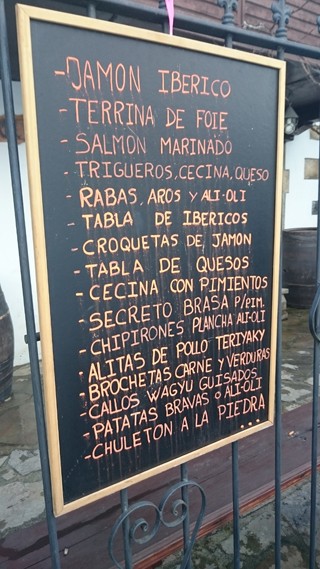 -JAMON IBERICO
-TERRINA DE FOIE
-SALMON MARINADO
-TRIGUEROS, CECINA, QUESO
-RABAS, AROS y ALI-OLI
-TABLA DE IBERICOS
-CROQUETAS DE JAMON
-TABLA DE QUESOS
-CECINA CON PIMIENTOS
-SECRETO BRASA P/PIM.
-CHIPIRONES PLANCHA ALI-OLI
-ALITAS DE POLLO TERIYAKY
-BROCHETAS CARNE Y VERDURAS
-CALLOS WAGYU GUISADOS
-PATATAS BRAVAS o ALI-OLI
-CHULETON A LA PIEDRA
...